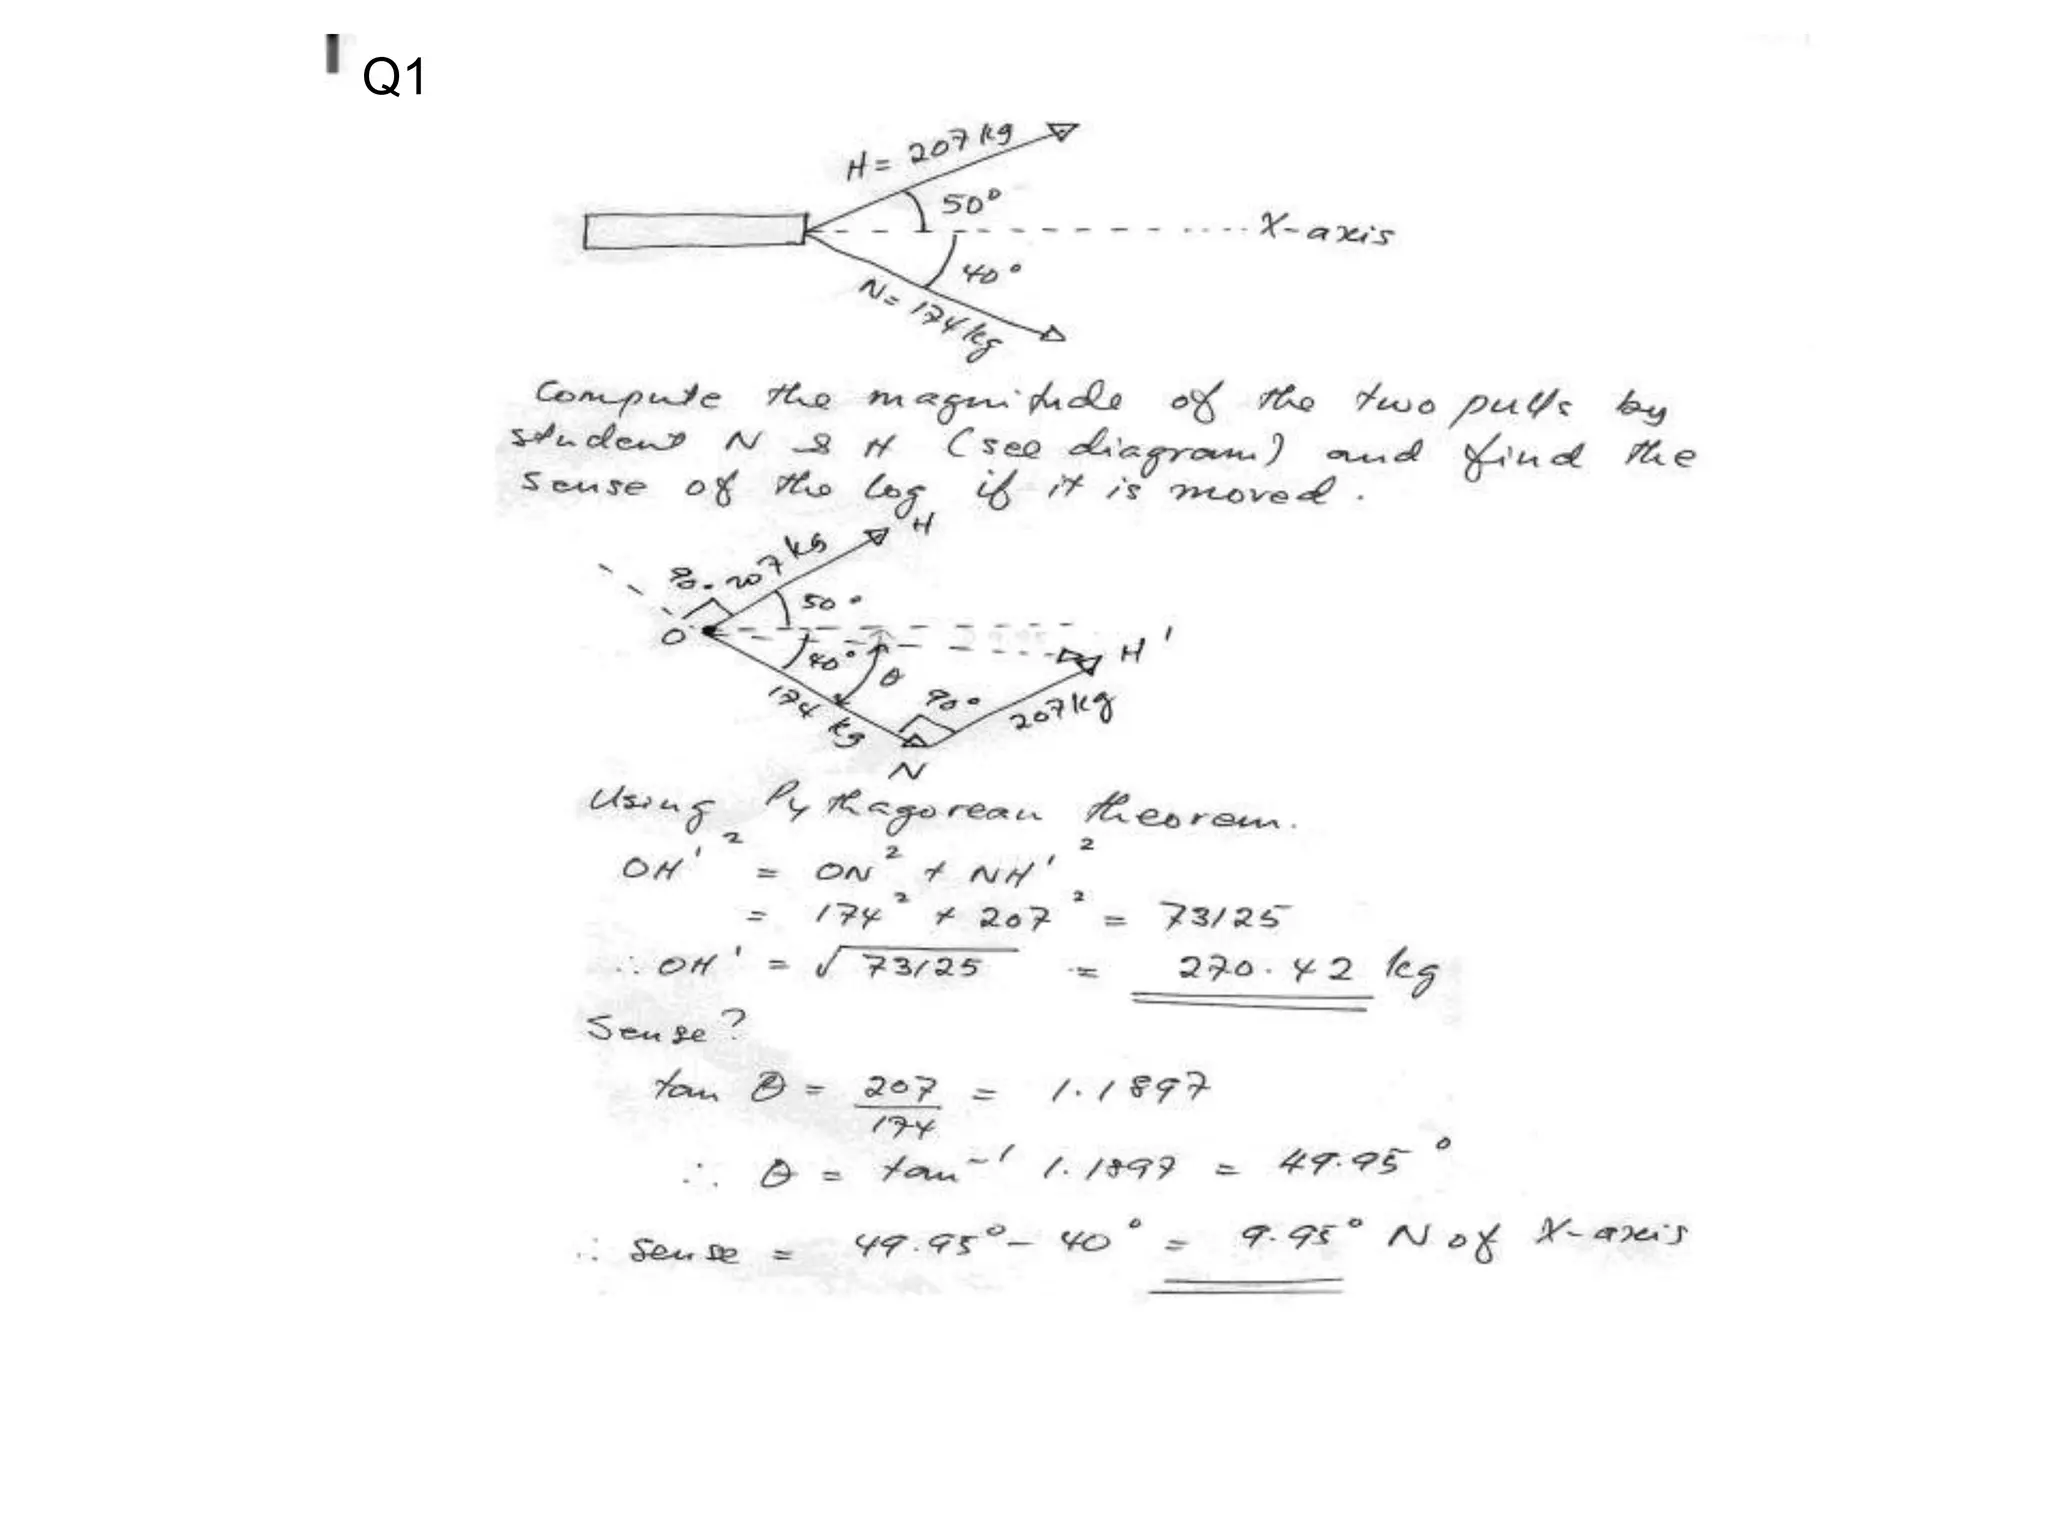 Q1
H = 207 kg
50°
X-axis
40°
N = 174 kg
Compute the magnitude of the two pulls by
student N & H (see diagram) and find the
sense of the log if it is moved.
H
90° 207 kg
50°
O
H'
40°
θ
174 kg
90°
207 kg
N
Using Pythagorean theorem.
OH'² = ON² + NH'²
= 174² + 207² = 73125
∴ OH' = √73125 = 270.42 kg
Sense?
tan θ = 207/174 = 1.1897
∴ θ = tan⁻¹ 1.1897 = 49.95°
∴ sense = 49.95° - 40° = 9.95° N of X-axis